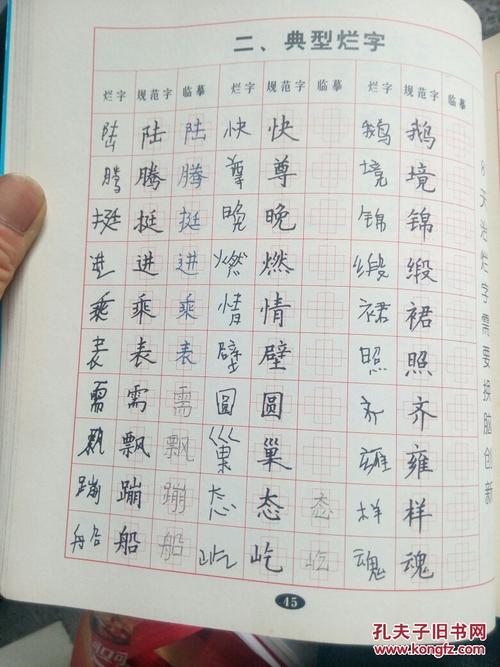 二、典型烂字
烂字 规范字 临摹 烂字 规范字 临摹 烂字 规范字 临摹
陆 陆 陆 快 快 鹅 鹅
腾 腾 腾 尊 尊 境 境
挺 挺 挺 晚 晚 锦 锦
进 进 进 燃 燃 缎 缎
乘 乘 乘 情 情 裙 裙
表 表 表 壁 壁 照 照
需 需 需 圆 圆 齐 齐
飘 飘 飘 巢 巢 雍 雍
蹦 蹦 蹦 态 态 态 样 样
船 船 船 屹 屹 屹 魂 魂
8天治烂字需要换脑创新
45
孔夫子旧书网